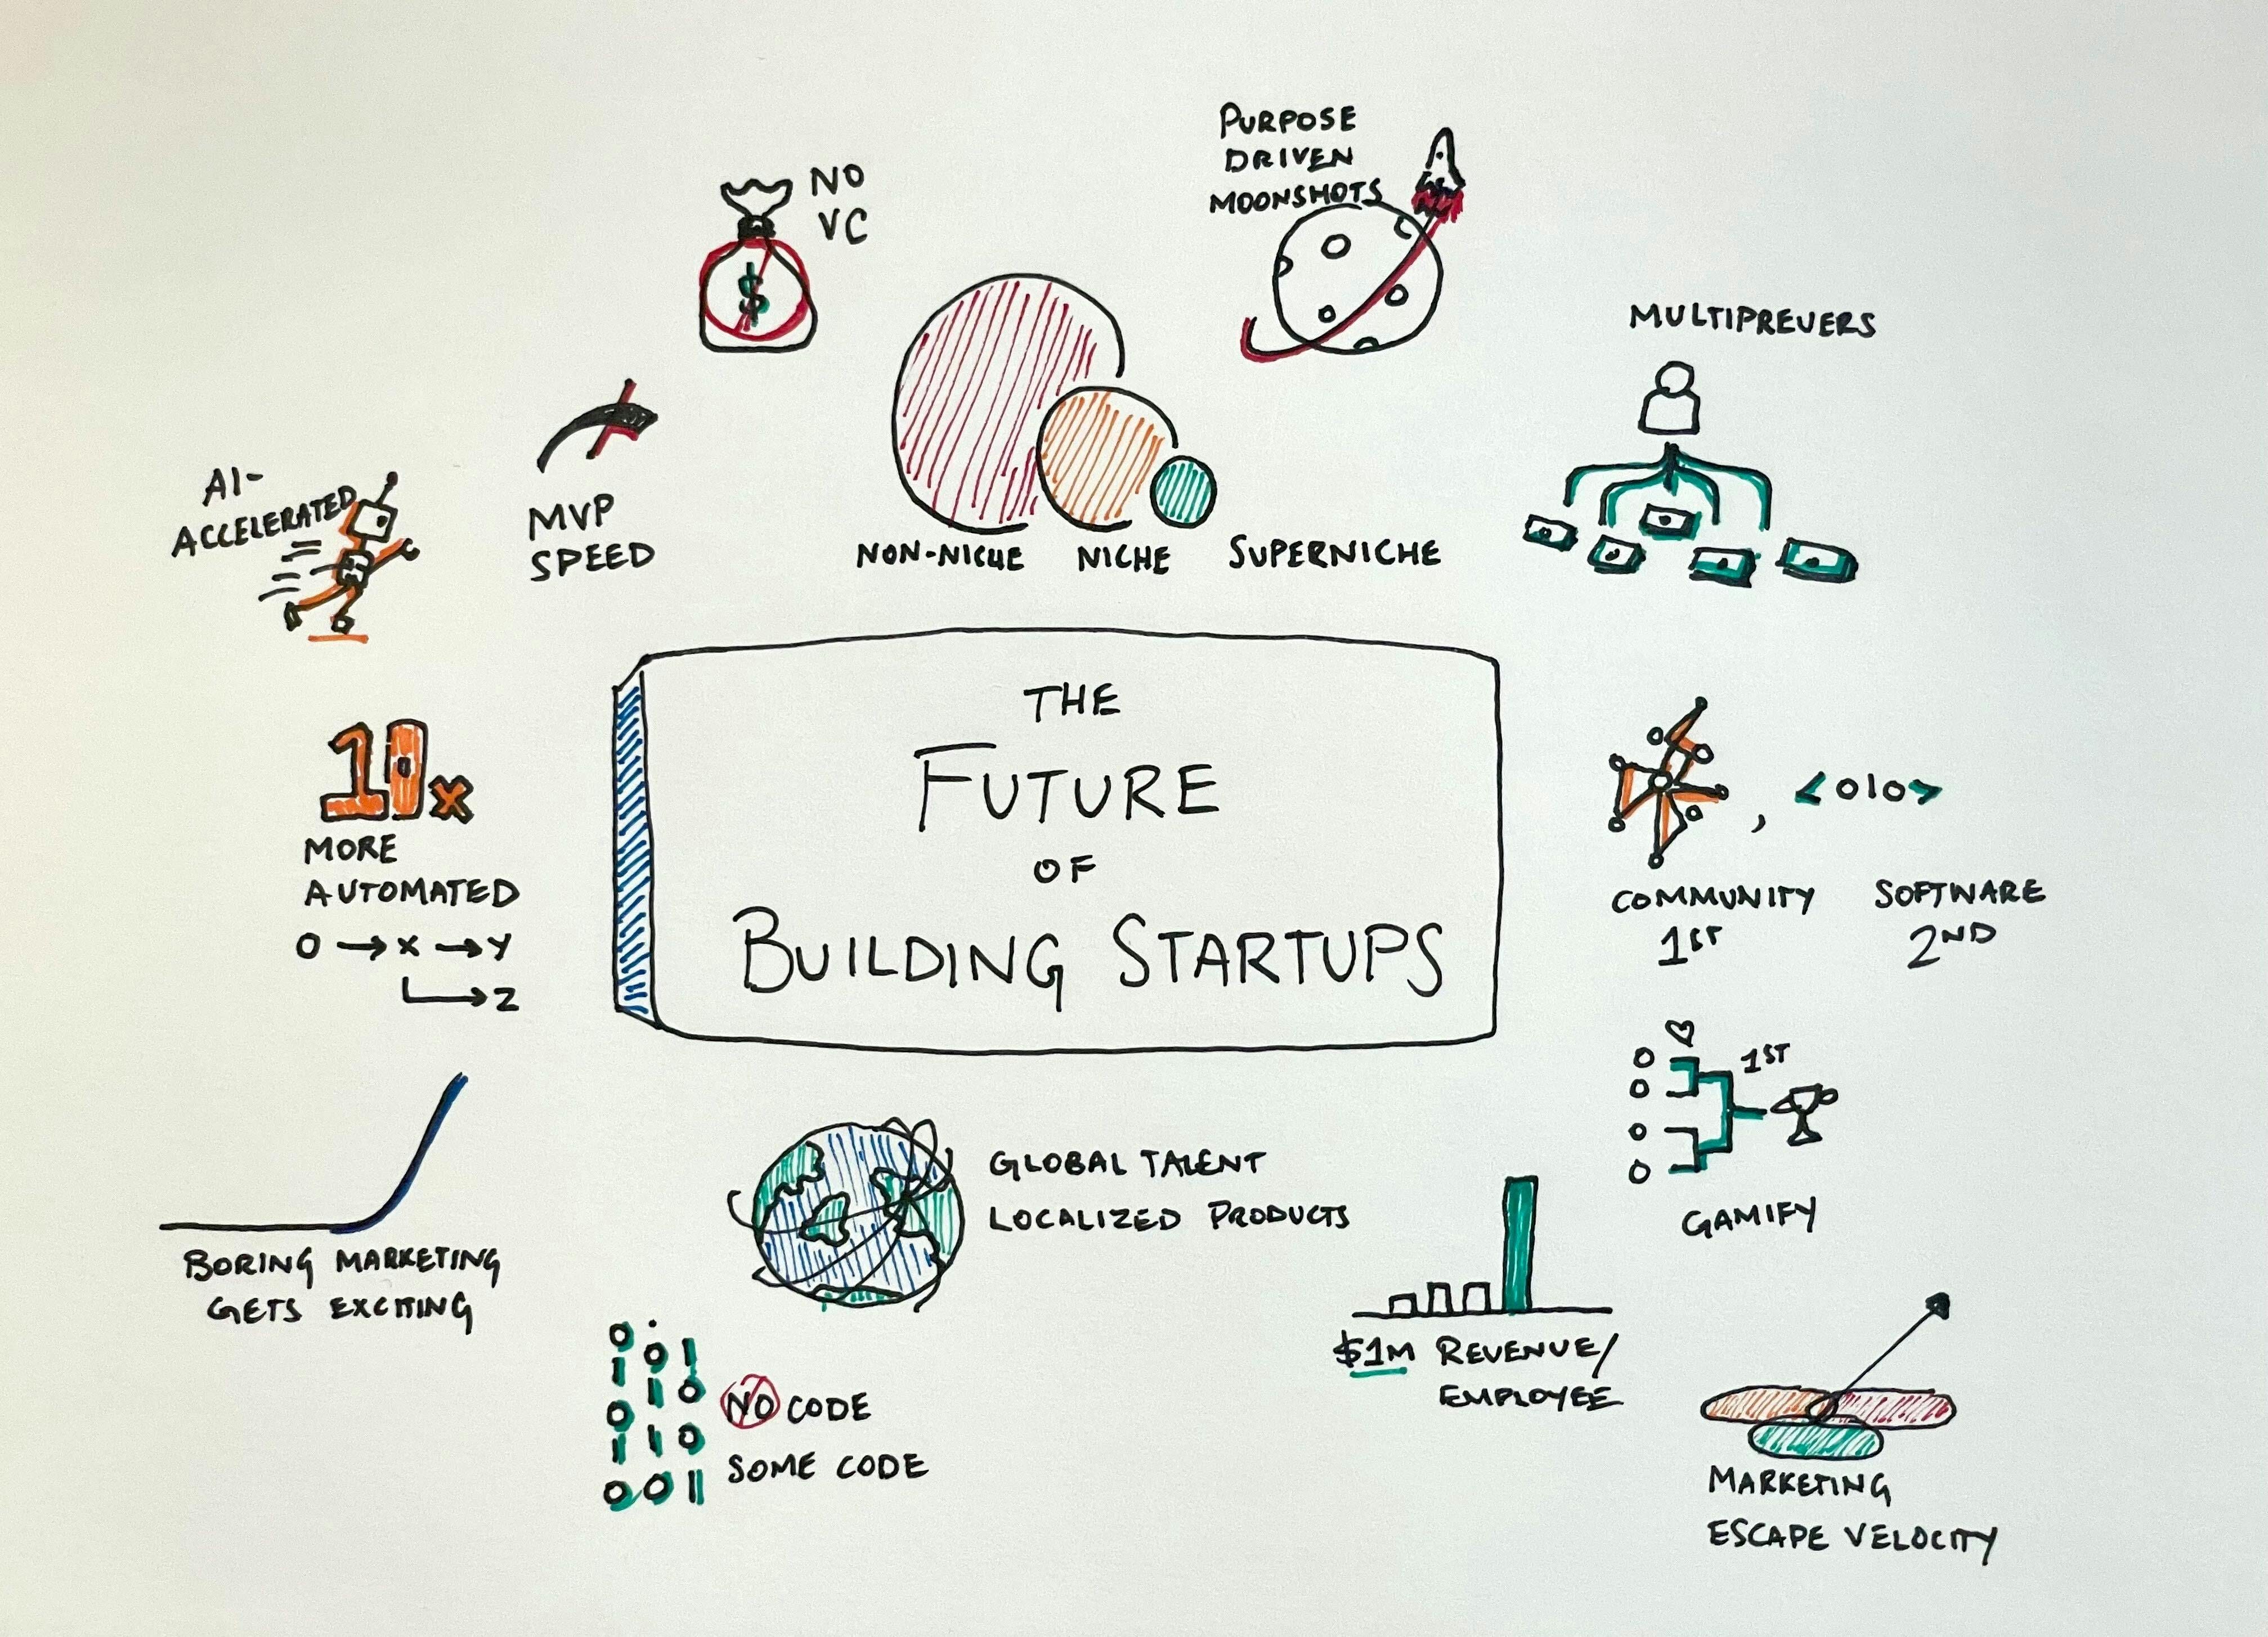 THE
FUTURE
OF
BUILDING STARTUPS
NO
VC
PURPOSE
DRIVEN
MOONSHOTS
MULTIPREUERS
AI-
ACCELERATED
MVP
SPEED
NON-NICHE NICHE SUPERNICHE
$
10x
MORE
AUTOMATED
O → X → Y
→ Z
, <010>
COMMUNITY SOFTWARE
1ST 2ND
1ST
GAMIFY
BORING MARKETING
GETS EXCITING
GLOBAL TALENT
LOCALIZED PRODUCTS
$1M REVENUE/
EMPLOYEE
0
1 0 1
0 1 0
1 1 0
0 0 11
NO CODE
SOME CODE
MARKETING
ESCAPE VELOCITY